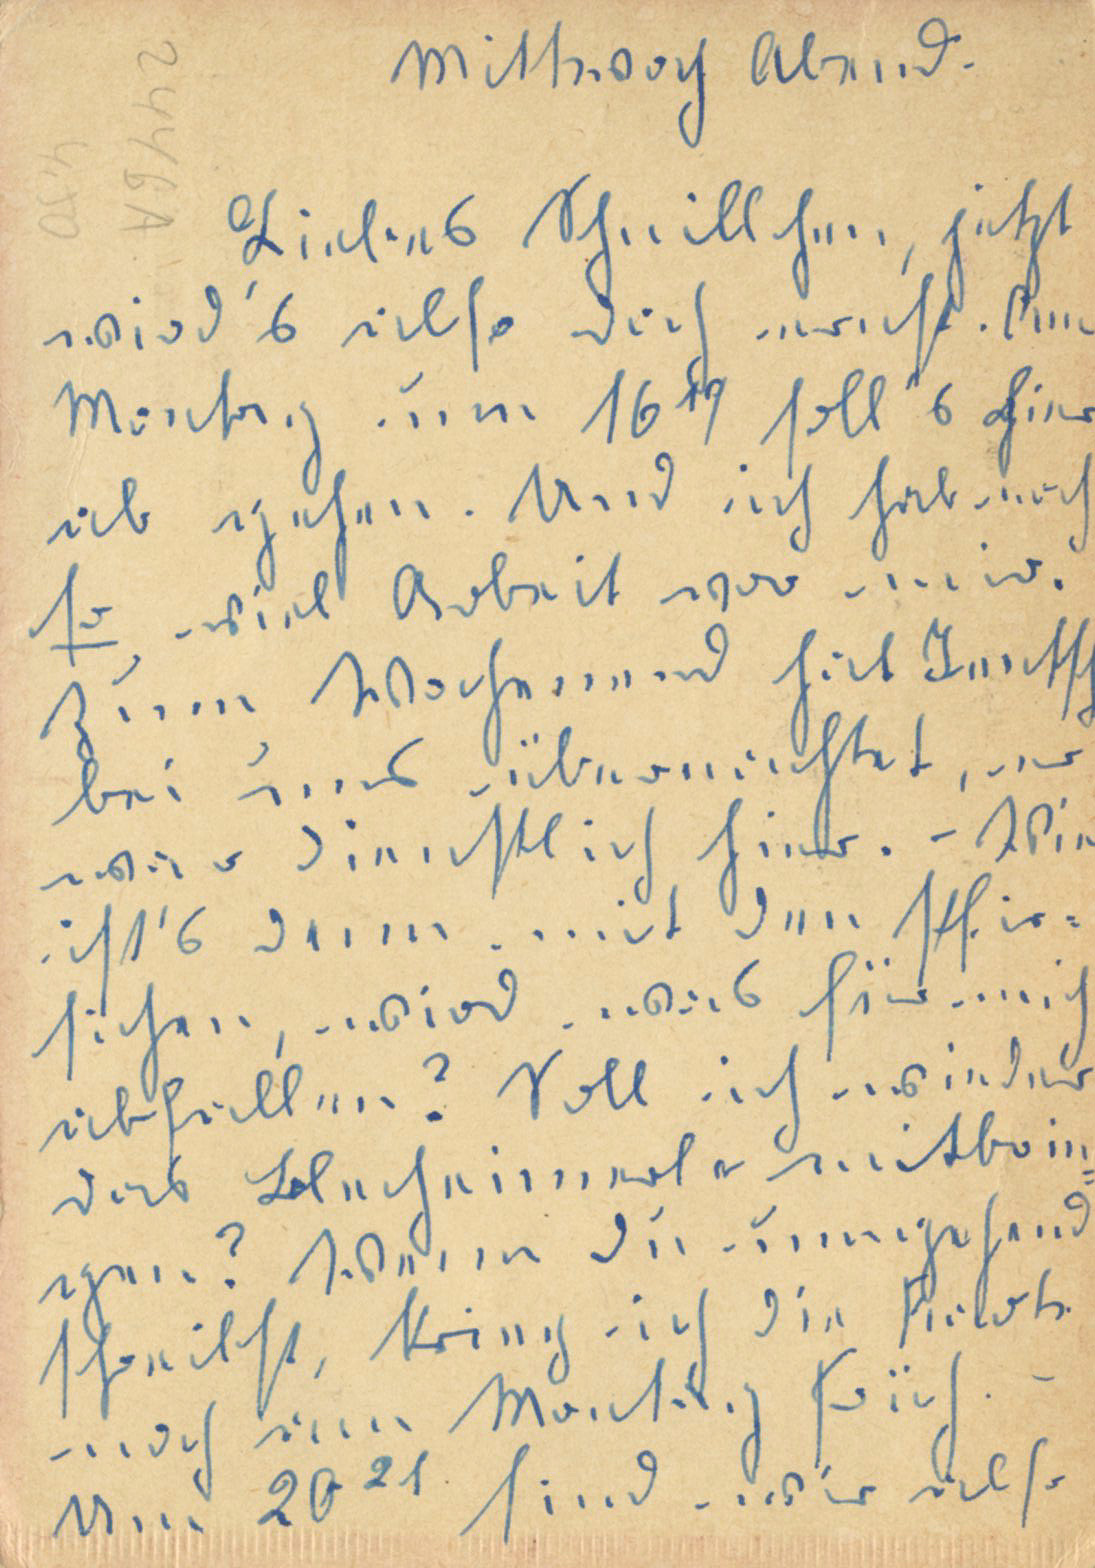 Mittwoch Abend.
Liebes Schnillchen, jetzt
wird's also doch ernst. Am
Montag um 16¹⁹ soll's hier
ab gehen. Und ich hab noch
so viel Arbeit vor mir.
Zum Wochenend hat
bei uns übernachtet, er
war dienstlich hier. - Wie
ist's denn mit den Pfir=
sichen, wird was für mich
abfallen? Soll ich wieder
das mitbrin=
gen? Wenn Du umgehend
schreibst, krieg ich die Karte
noch am Montag früh. -
Um 20²¹ sind wir also
244 6A
4,50